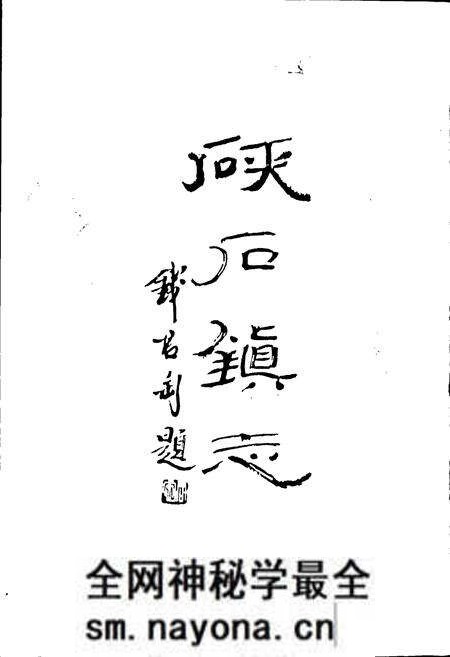 硖石鎮志
錢君匋題
全网神秘学最全
sm.nayona.cn